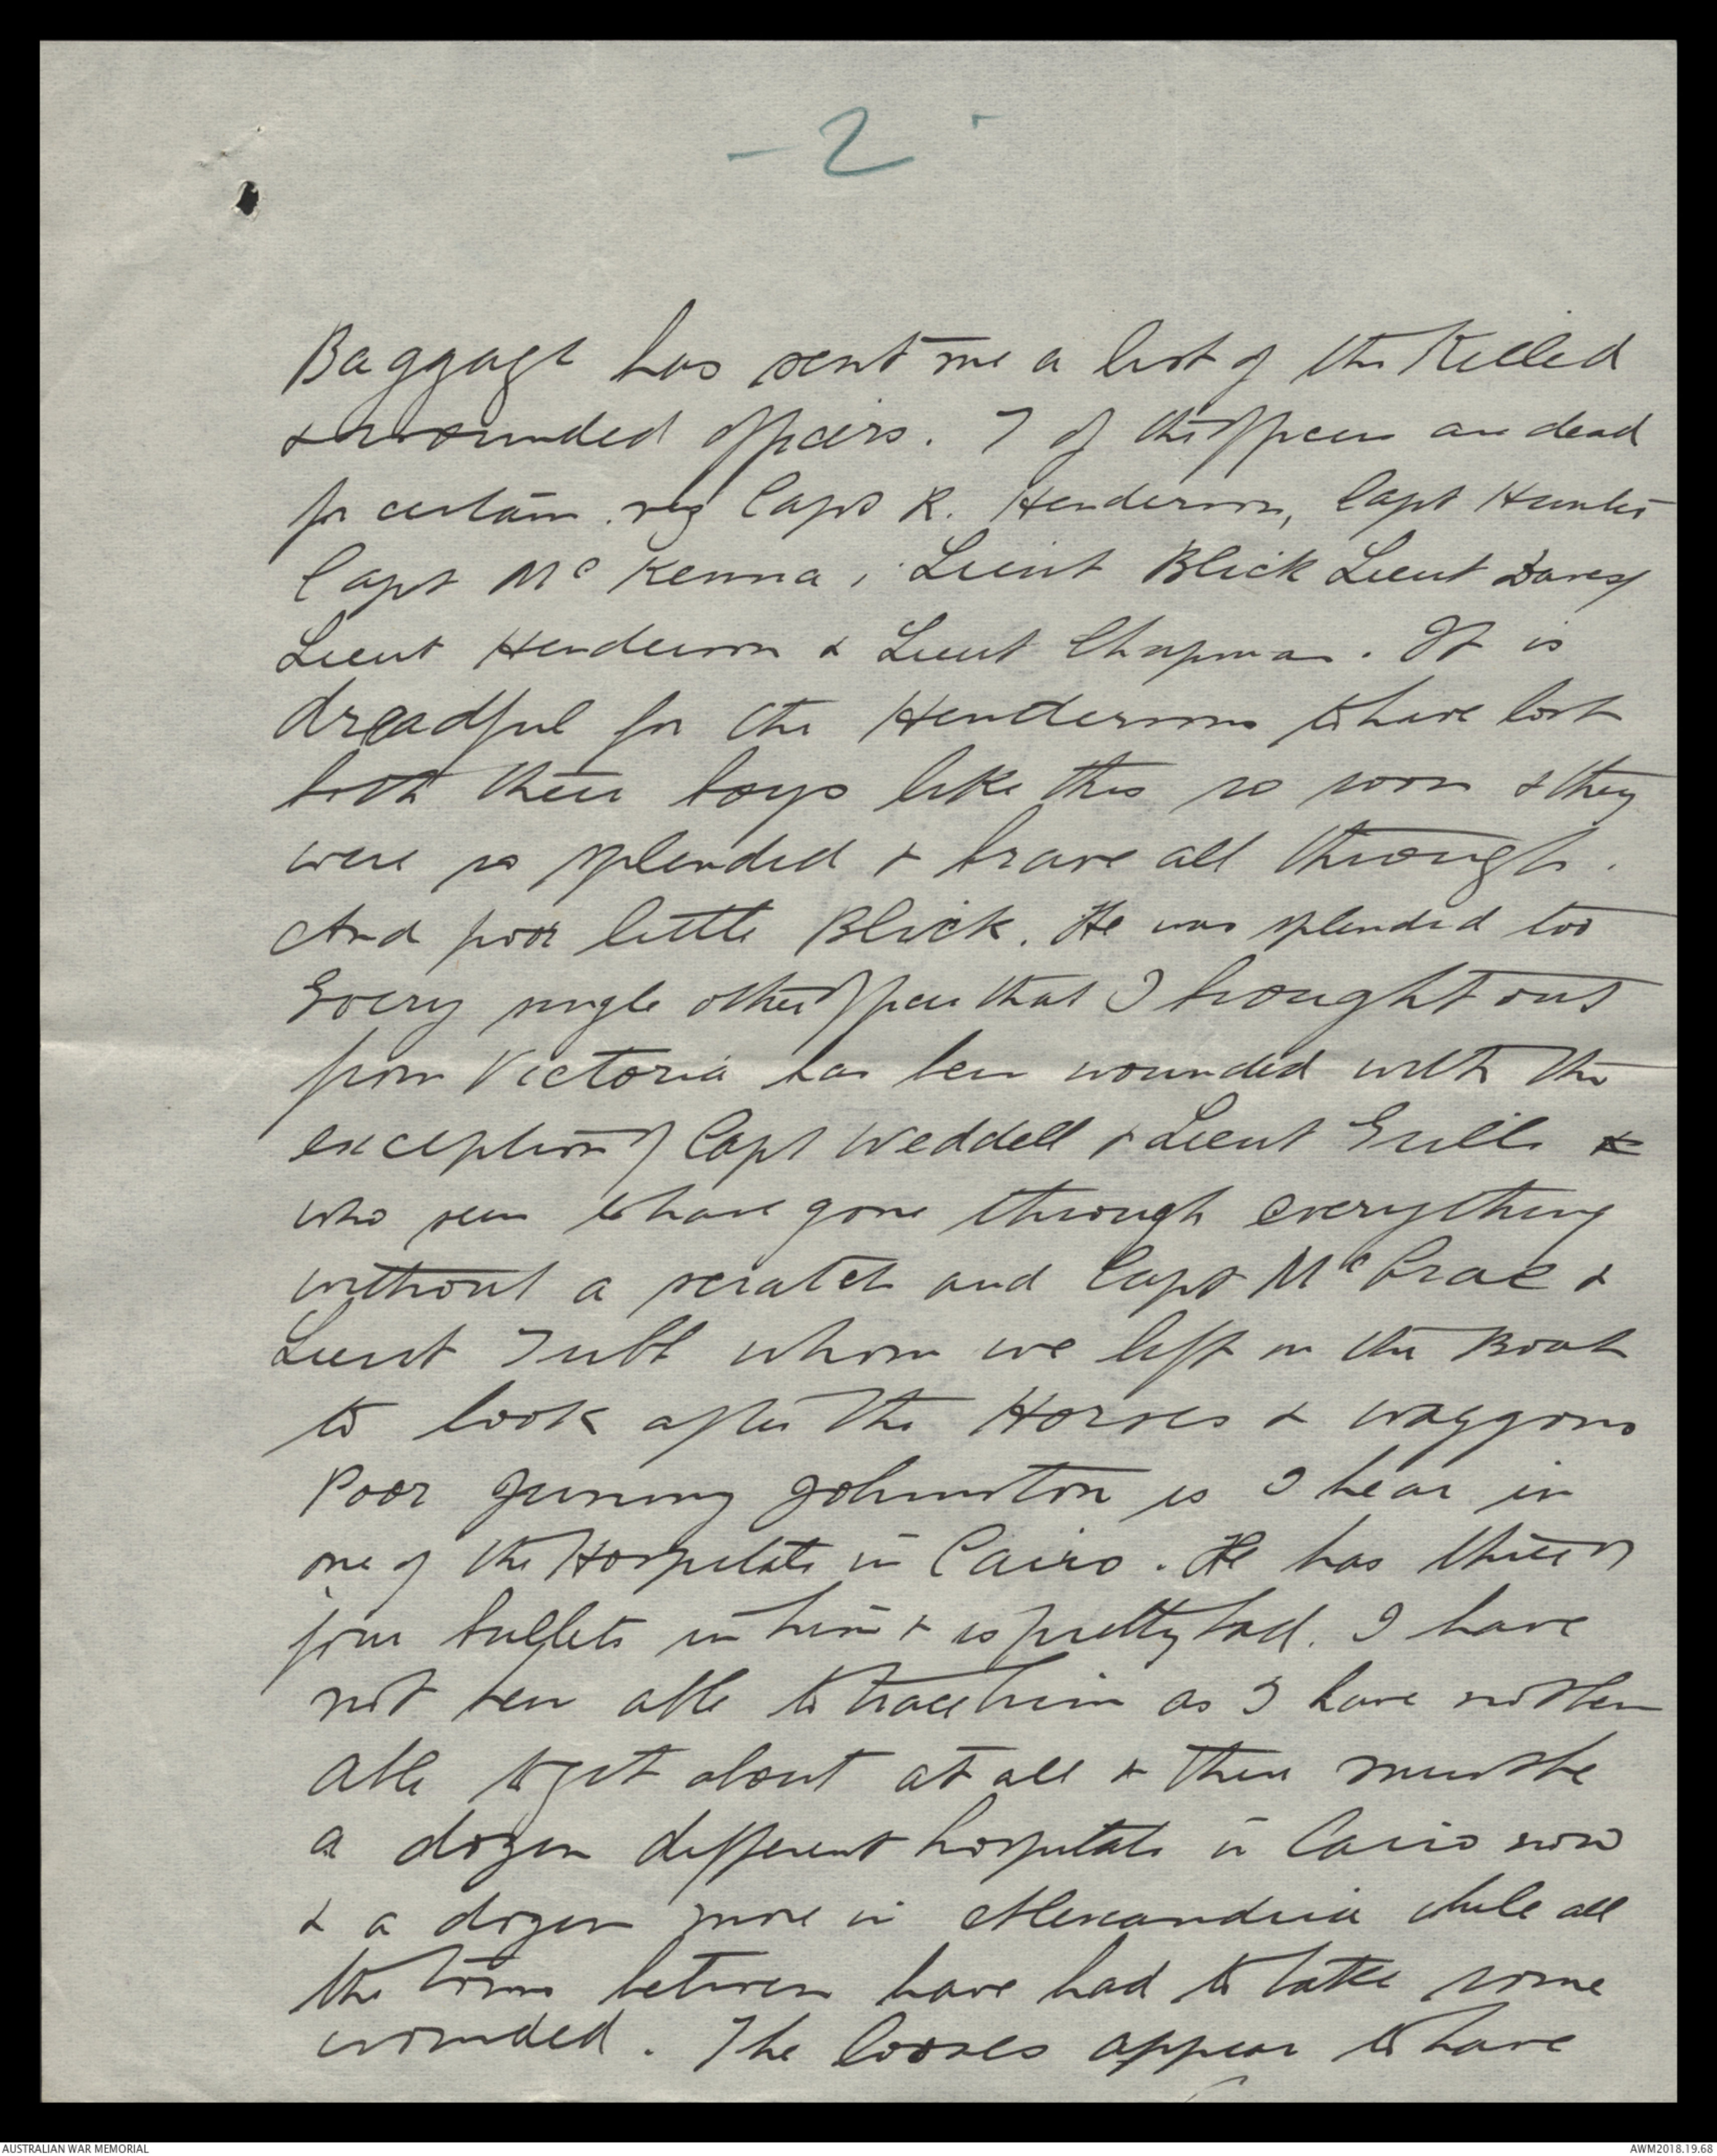 - 2 -
Baggage has sent me a list of the Killed
& wounded officers. 7 of the officers are dead
for certain. viz Capt R. Henderson, Capt Hunter
Capt McKenna, Lieut Blick Lieut Davey
Lieut Henderson & Lieut Chapman. It is
dreadful for the Hendersons to have lost
both their boys like this so soon & they
were so splendid & brave all through.
And poor little Blick. He was splendid too
Every single other officer that I brought out
from Victoria has been wounded with the
exception of Capt Weddell & Lieut Grills
who seem to have gone through everything
without a scratch and Capt McCrae &
Lieut Tubb whom we left on the Boat
to look after the Horses & waggons
Poor Jimmy Johnston is I hear in
one of the Hospitals in Cairo. He has three or
four bullets in him & is pretty bad. I have
not been able to trace him as I have not been
able to get about at all & there must be
a dozen different hospitals in Cairo now
& a dozen more in Alexandria while all
the towns between have had to take some
wounded. The looses appear to have
AUSTRALIAN WAR MEMORIAL
AWM2018.19.68